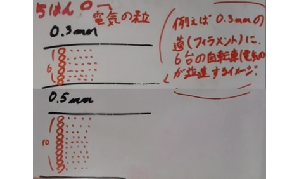 電気の粒
0.3mm
6
例えば0.3mmの
道(フィラメント)に
6台の自転車(電気の
が並走するイメージ
0.5mm